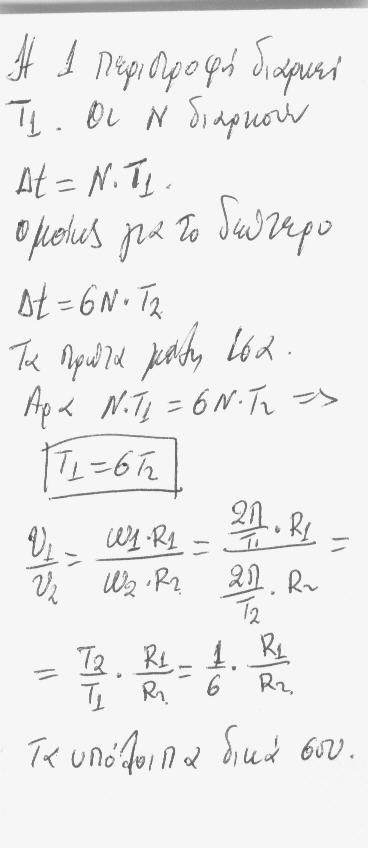 Η 1 περιστροφή διαρκεί
T₁. Οι N διαρκούν
Δt = N·T₁.
Ομοίως για το δεύτερο
Δt = 6N·T₂
Τα πρώτα μέλη ίσα.
Αρα N·T₁ = 6N·T₂ =>
T₁ = 6T₂
υ₁/υ₂ = ω₁·R₁/ω₂·R₂ = (2π/T₁ · R₁)/(2π/T₂ · R₂) =
= T₂/T₁ · R₁/R₂ = 1/6 · R₁/R₂
Τα υπόλοιπα δικά σου.